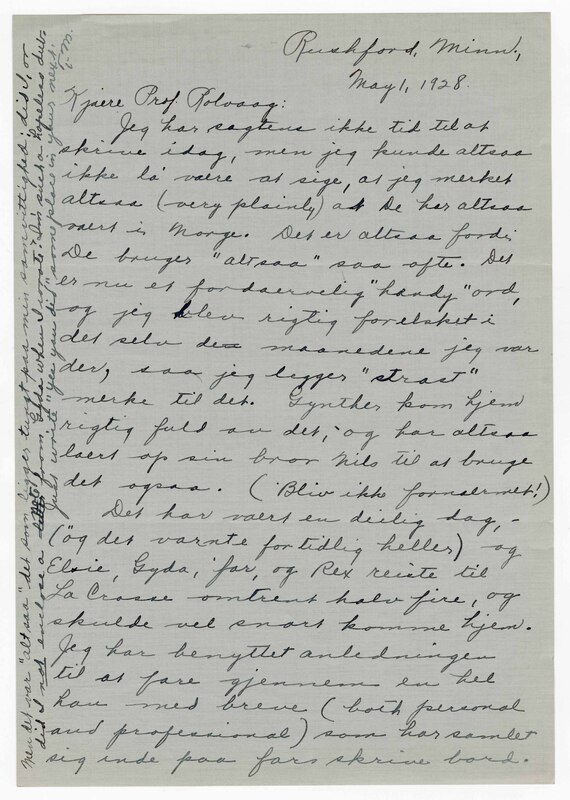 Rushford, Minn.,
May 1, 1928.
Kjaere Prof. Rolvaag:
Jeg har sagtens ikke tid til at
skrive idag, men jeg kunde altsaa
ikke la' være at sige, at jeg merket
altsaa (very plainly) at De har altsaa
vaert i Norge. Det er altsaa fordi
De bruger "altsaa" saa ofte. Det
er nu et fordaervelig "handy" ord,
og jeg blev rigtig forelsket i
det selv de maanedene jeg var
der, saa jeg legger "strast"
merke til det. Gynther kom hjem
rigtig fuld av det, og har altsaa
laert op sin bror Nils til at bruge
det ogsaa. (Bliv ikke fornaermet!)
Det har vaert en deilig dag, -
(og det varnte for tidlig heller) og
Elsie, Gyda, far, og Rex reiste til
La Crosse omtrent halv fire, og
skulde vel snart komme hjem.
Jeg har benyttet anledningen
til at fare gjennem en hel
hau med breve (both personal
and professional) som har samlet
sig inde paa fars skrive bord.
Men det var "altsaa" det som ligger tungt paa min samvittighed; did I, or
did I not enclose a note from Gyda when I wrote? I'm such a hopeless dub.
Just write "yes you did" someplace in your next.
T.M.